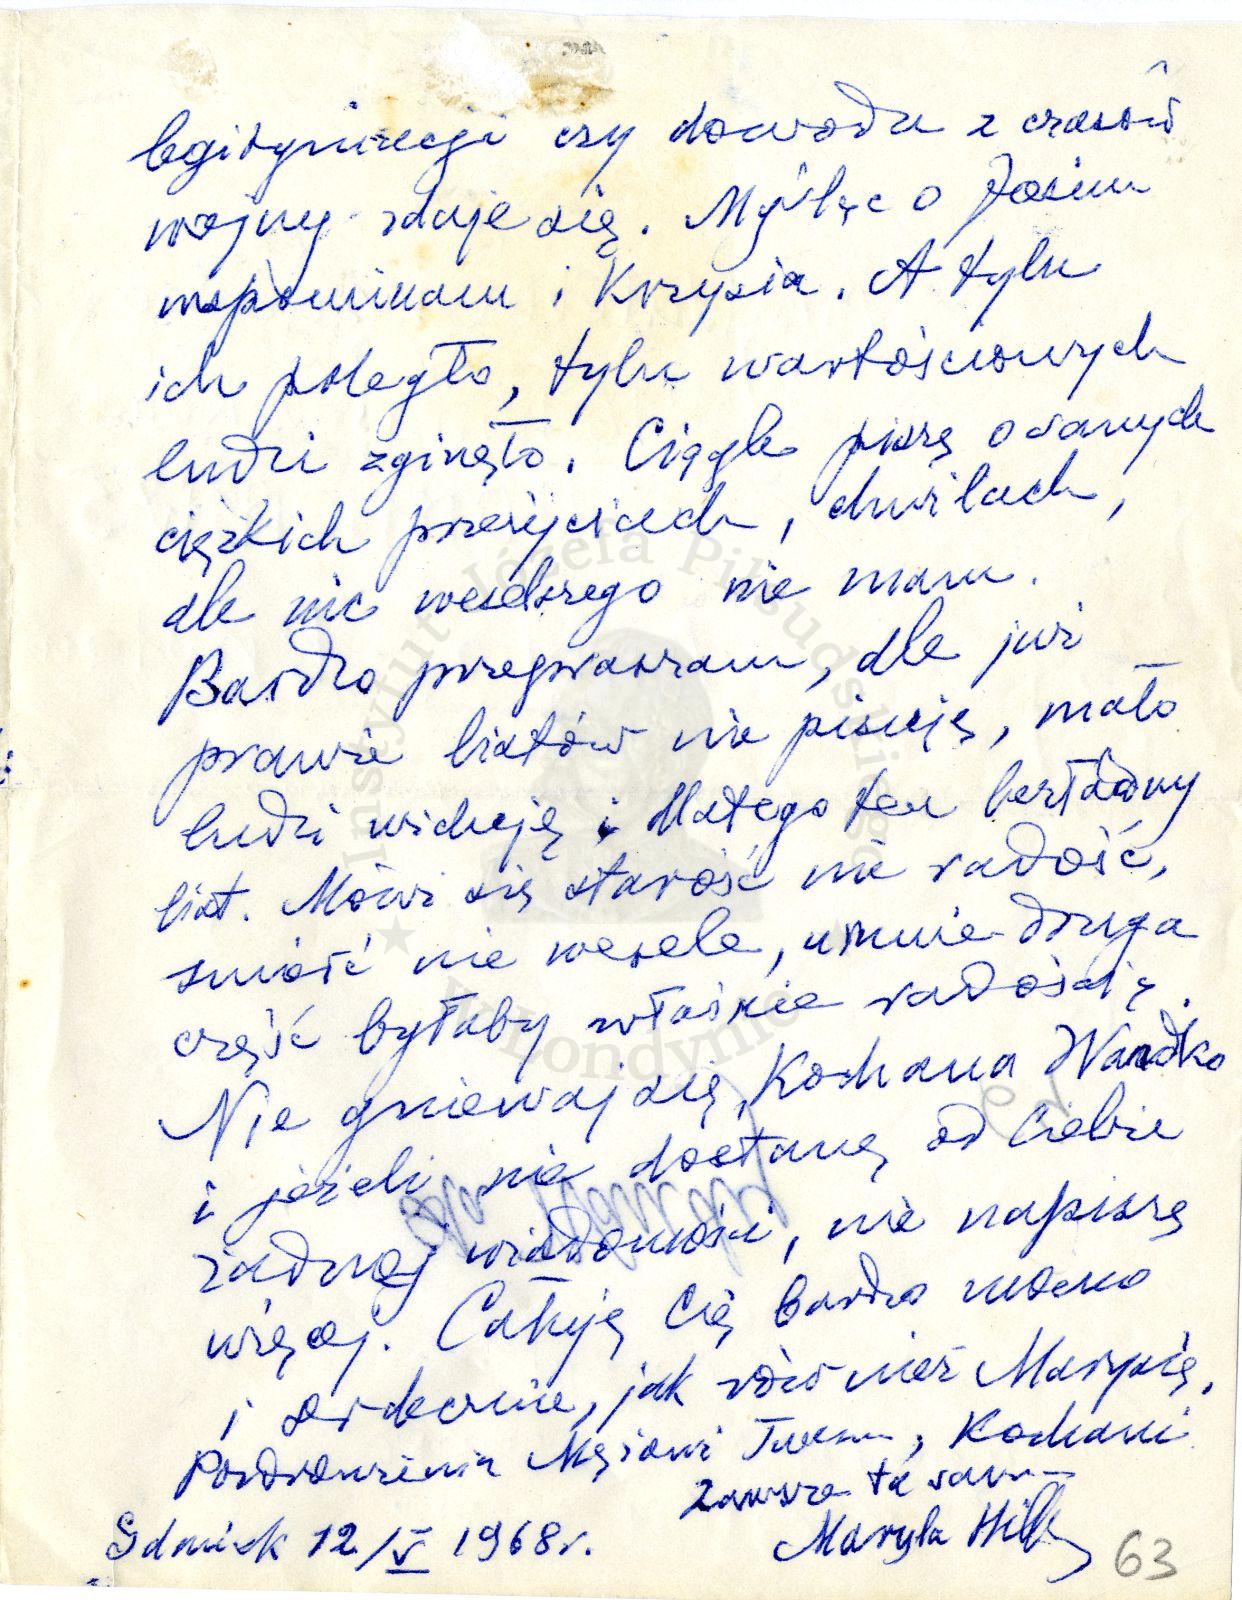 legitymizacji czy dowodu z czasów
wojny zdaje się. Myśląc o Josiu
wspominam i Krzysia. A tylu
ich poległo, tylu wartościowych
ludzi zginęło. Ciągle piszę o samych
ciężkich przeżyciach, chwilach,
ale nic weselszego nie mam.
Bardzo przepraszam, ale już
prawie listów nie pisuję, mało
ludzi widuję i dlatego ten bezładny
list. Mówi się starość nie radość,
śmierć nie wesele, u mnie druga
część byłaby właśnie radością.
Nie gniewaj się, Kochana Wandko
i jeżeli nie dostanę od Ciebie
żadnej wiadomości, nie napiszę
więcej. Całuję Cię bardzo mocno
i serdecznie, jak również Marysię,
Pozdrowienia Mężowi Twemu, Kochani
Zawsze ta sama
Maryla
Gdańsk 12/V 1968 r.
63
Instytut Józefa Piłsudskiego
w Londynie